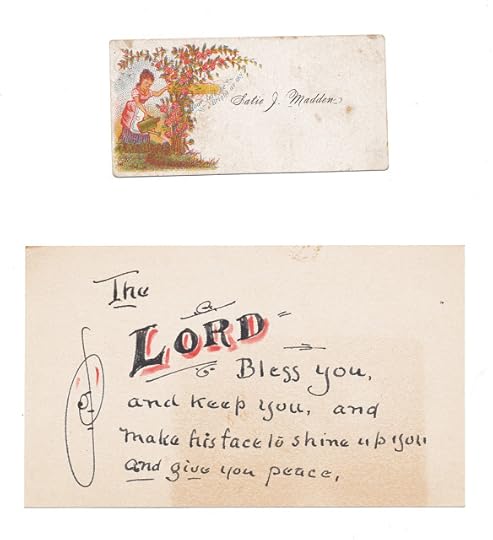 Satie J. Madden
The
LORD
Bless you,
and keep you, and
make his face to shine up you
and give you peace.